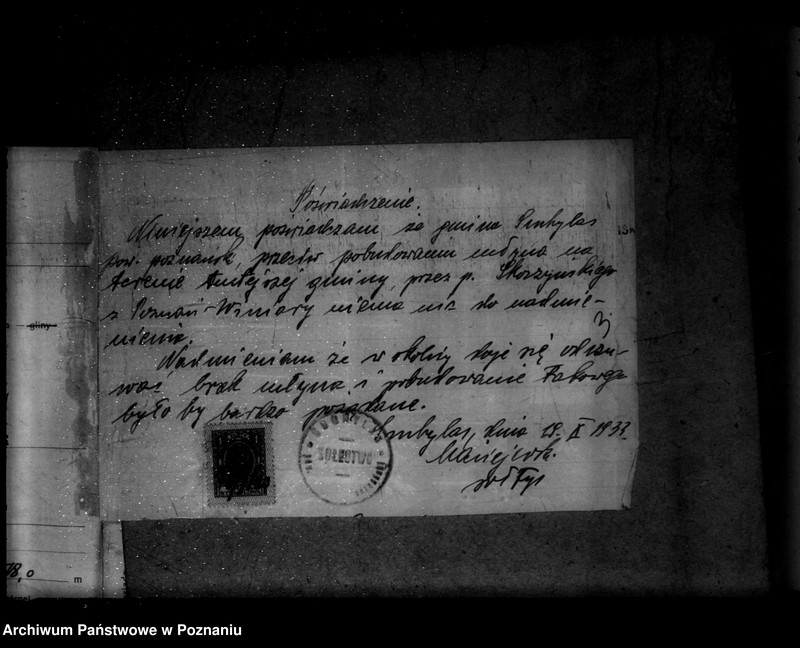 Poświadczenie.
Niniejszem poświadczam że gmina Smhylas
pow. poznańsk, przeciw pobudowaniu młyna na
terenie tutejszej gminy, przez p. Skorzyńskiego
z Poznań-Winiary niema nic do nadmie-
nienia.
Nadmieniam że w okolicy daje się odczu-
wać brak młyna i pobudowanie takowego
było by bardzo pożądane.
dnia 28. X 1933.
Maciejewski
sołtys
SOŁECTWO
gliny
18,0 m
Archiwum Państwowe w Poznaniu